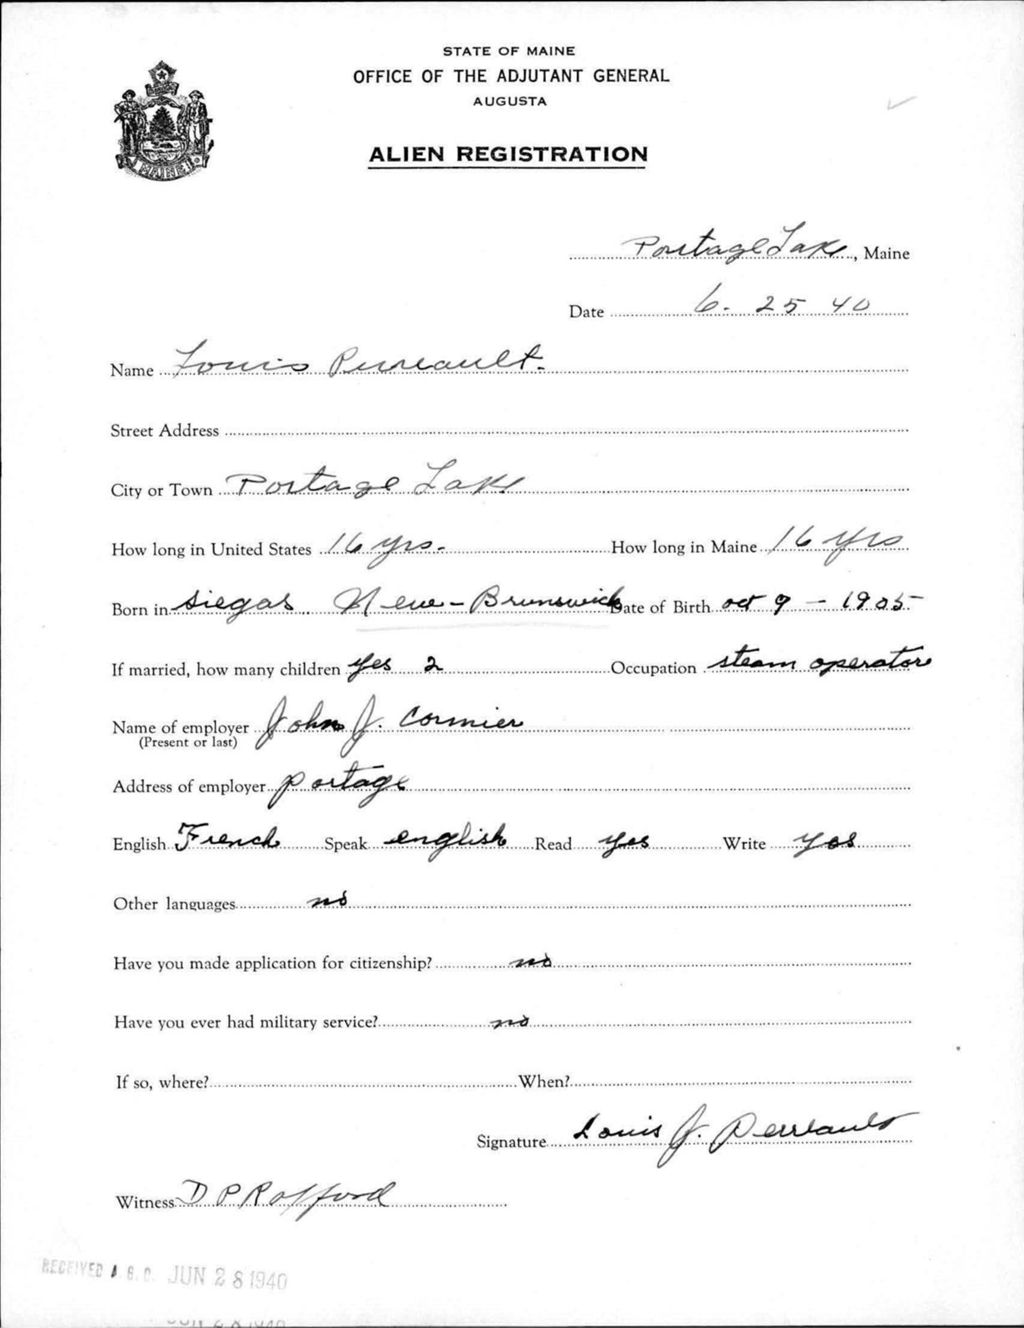 STATE OF MAINE
OFFICE OF THE ADJUTANT GENERAL
AUGUSTA
ALIEN REGISTRATION
MAINE
Portage Lake, Maine
Date 6-25 40
Name Louis Perreault.
Street Address
City or Town Portage Lake
How long in United States 16 yrs. How long in Maine 16 yrs
Born in siegas, New-Brunswick Date of Birth oct 9 - 1905
If married, how many children yes 2 Occupation steam operator
Name of employer John J. Cormier
(Present or last)
Address of employer portage
English French Speak english Read yes Write yes
Other languages no
Have you made application for citizenship? no
Have you ever had military service? no
If so, where? When?
Signature Louis J. Perreault
Witness D P Rafford
RECEIVED A.G.O. JUN 28 1940